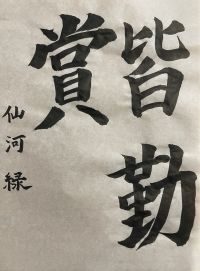 皆勤
賞
仙河緑